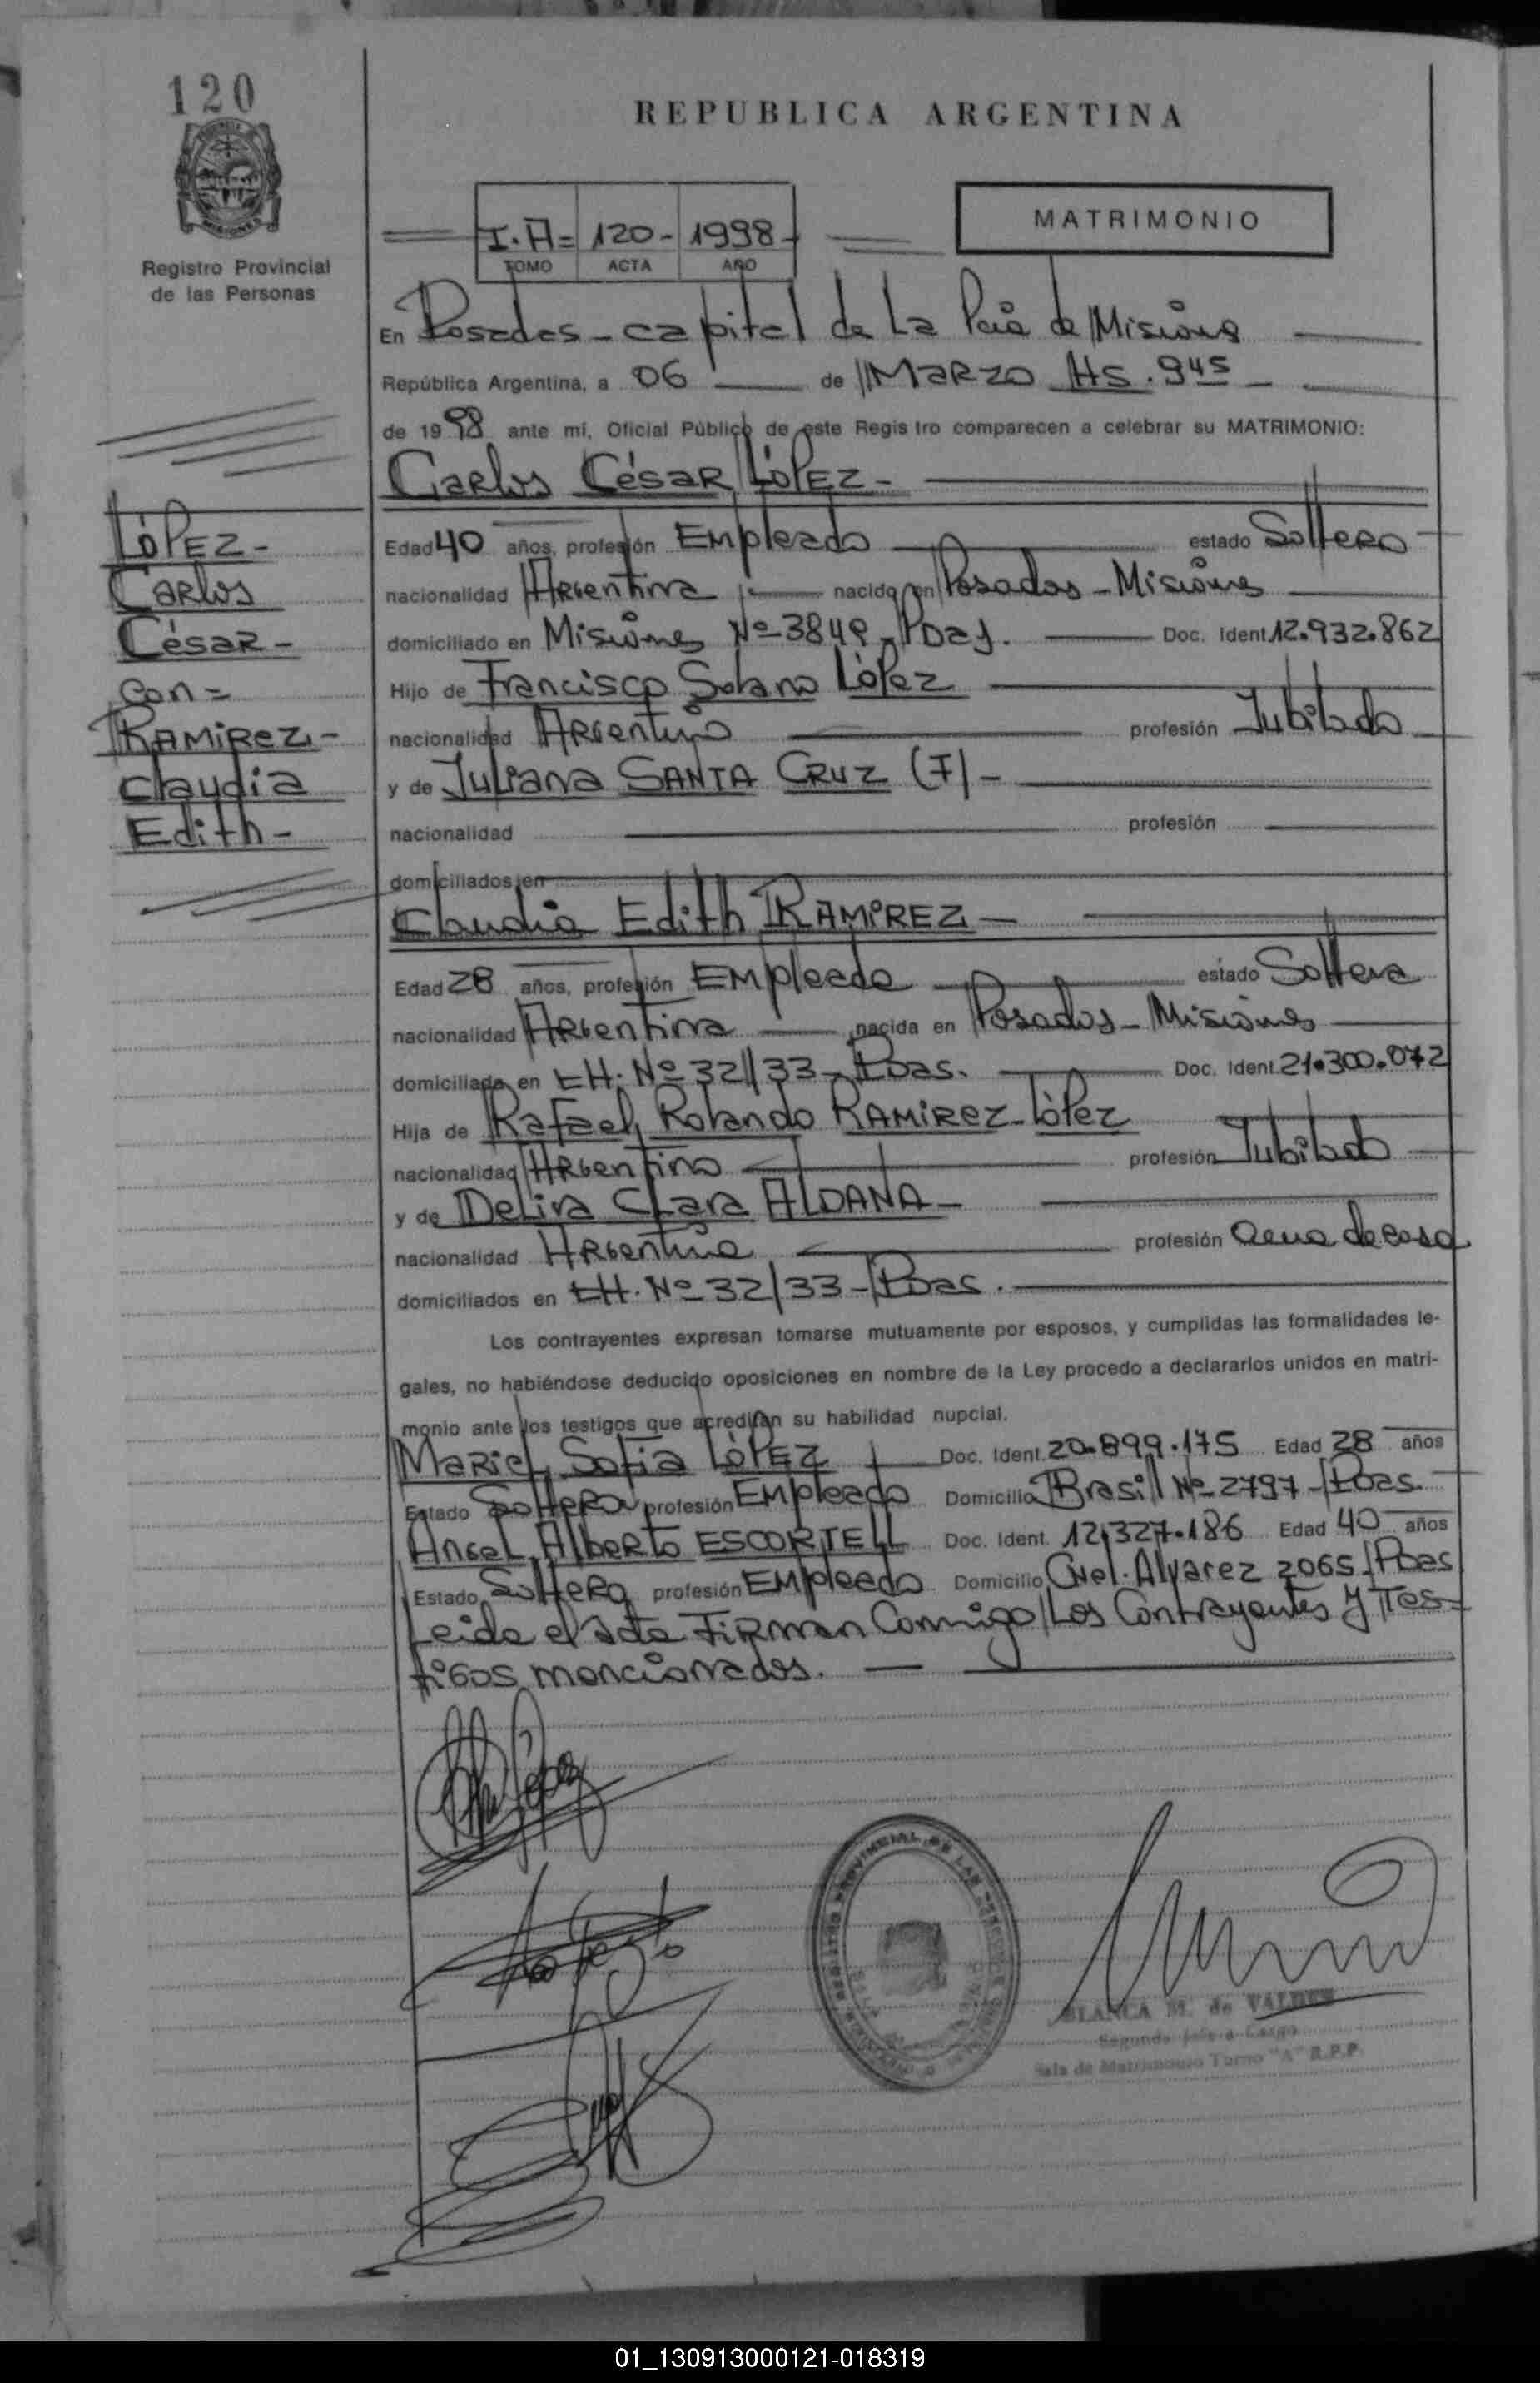 120
REPUBLICA ARGENTINA
MATRIMONIO
I.A= 120- 1998-
TOMO ACTA AÑO
Registro Provincial
de las Personas
En Posadas - capital de La Pcia de Misiones
República Argentina, a 06 de MARZO Hs. 9 45
de 19 98 ante mí, Oficial Público de este Regis tro comparecen a celebrar su MATRIMONIO:
Carlos César LÓPEZ-
LÓPEZ-
Carlos
César-
con=
RAMIREZ-
Claudia
Edith-
Edad 40 años, profesión Empleado estado Soltero
nacionalidad Argentina nacido en Posadas - Misiones
domiciliado en Misiones Nº 3849 - Pdas. Doc. Ident. 12.932.862
Hijo de Francisco Solano López
nacionalidad Argentino profesión Jubilado
y de Juliana SANTA CRUZ (F) -
nacionalidad profesión
domiciliados en
Claudia Edith RAMIREZ -
Edad 28 años, profesión Empleada estado Soltera
nacionalidad Argentina nacida en Posadas - Misiones
domiciliada en CH. Nº 32/33 - Pdas. Doc. Ident. 21.300.072
Hija de Rafael Rolando RAMIREZ López
nacionalidad Argentino profesión Jubilado
y de Delira Clara ALDANA -
nacionalidad Argentina profesión ama de casa
domiciliados en CH. Nº 32/33 - Pdas.
Los contrayentes expresan tomarse mutuamente por esposos, y cumplidas las formalidades le-
gales, no habiéndose deducido oposiciones en nombre de la Ley procedo a declararlos unidos en matri-
monio ante los testigos que acreditan su habilidad nupcial.
Mariel Sofia LÓPEZ Doc. Ident. 20.899.175 Edad 28 años
Estado Soltera profesión Empleada Domicilio Brasil Nº 2797 - Pdas.
Angel Alberto ESCORTELL Doc. Ident. 12.327.186 Edad 40 años
Estado Soltero profesión Empleado Domicilio Cnel. Alvarez 2065 - Pdas
Leida el acta Firman Conmigo Los Contrayentes y Tes-
tigos mencionados.
BLANCA M. de VALDEZ
Segundo Jefe a Cargo
Sala de Matrimonio Turno "A" R.P.P.
01_130913000121-018319